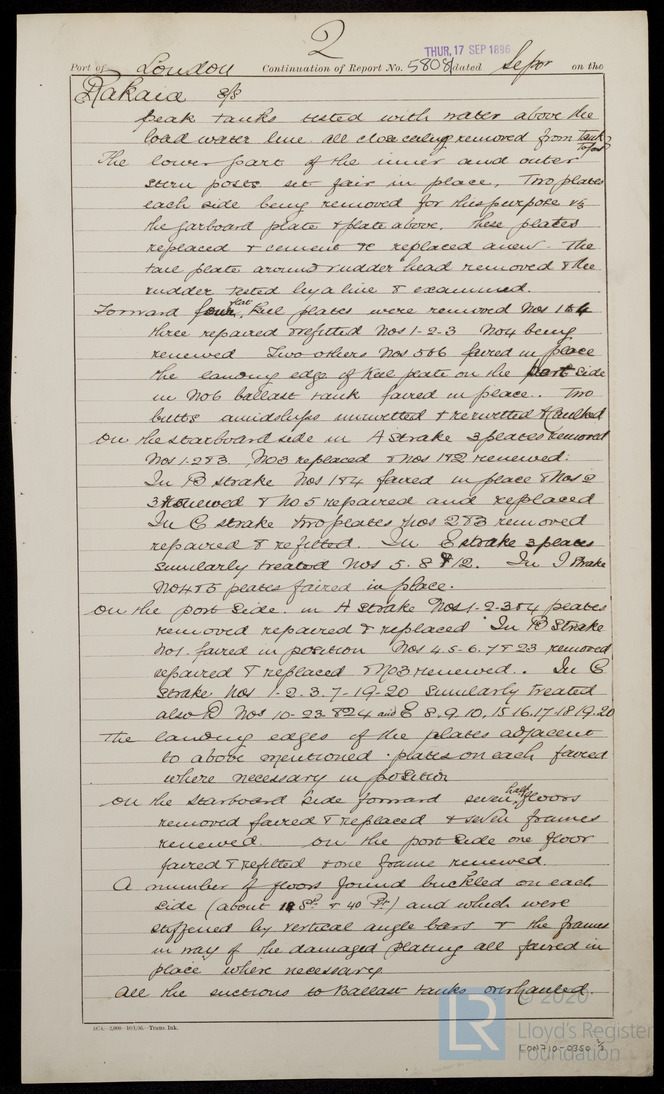 2
THUR, 17 SEP 1896
Port of London Continuation of Report No. 58081 dated on the
Rakaia S/S
peak tanks tested with water above the
load water line all close ceiling removed from tank
tops
The lower part of the inner and outer
stern posts set fair in place, Two plates
each side being removed for this purpose vz
the garboard plate & plate above. These plates
replaced & cement &c replaced anew. The
tail plate around rudder head removed & the
rudder tested by a line & examined.
Forward four flat Keel plates were removed Nos 1 to 4
three repaired & refitted Nos 1-2-3 No 4 being
renewed Two others Nos 5 & 6 faired in place
the landing edge of Keel plate on the Port side
in No 6 ballast tank faired in place. Two
butts amidships unrivetted & rerivetted & Caulked
On the starboard side in A Strake 3 plates removed
Nos 1. 2 & 3. No 3 replaced & Nos 1 & 2 renewed.
In B strake Nos 1 & 4 faired in place & Nos 2
3 renewed & No 5 repaired and replaced
In C strake two plates Nos 2 & 3 removed
repaired & refitted. In E strake 3 plates
similarly treated Nos 5. 8 & 12. In J Strake
No 4 & 5 plates faired in place.
On the port side. in A Strake Nos 1-2-3 & 4 plates
removed repaired & replaced In B Strake
No 1. faired in position Nos 4. 5. 6. 7 & 23 removed
repaired & replaced & No 3 renewed. In C
Strake Nos 1. 2. 3. 7-19-20 similarly treated
also D Nos 10-23. & 24 and E 8. 9. 10. 15 16. 17-18 19. 20
The landing edges of the plates adjacent
to above mentioned plates on each faired
where necessary in position
On the starboard side forward seven half floors
removed faired & replaced & seven frames
renewed. On the port side one floor
faired & refitted & one frame renewed.
A number of floors found buckled on each
side (about St. & 40 Pt.) and which were
stiffened by vertical angle bars & the frames
in way of the damaged plating all faired in
place where necessary
All the suctions to Ballast tanks overhauled.
© 2020
LR
Lloyd's Register
Foundation
LON710-0350